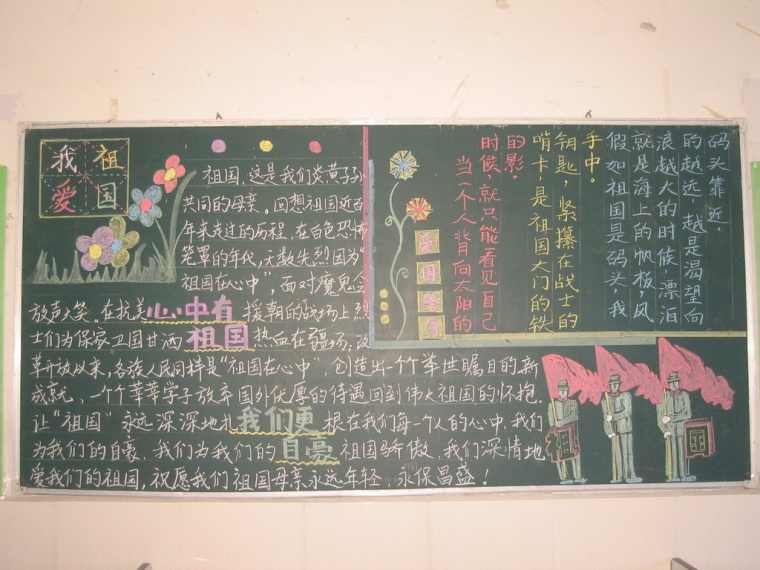 我祖
爱国
祖国,这是我们炎黄子孙
共同的母亲。回想祖国近百
年来走过的历程,在白色恐怖
笼罩的年代,无数先烈因为"
祖国在心中",面对魔鬼会
放声大笑。在抗美心中有援朝的战场上烈
士们为保家卫国甘洒祖国热血在疆场,改
革开放以来,各族人民同样是"祖国在心中",创造出一个个举世瞩目的新
成就。一个个莘莘学子放弃国外优厚的待遇回到伟大祖国的怀抱。
让"祖国"永远深深地扎我们更根在我们每一个人的心中。我们
为我们的自豪、我们为我们的自豪祖国骄傲、我们深情地
爱我们的祖国,祝愿我们祖国母亲永远年轻、永保昌盛!
当一个人背向太阳的
时候,就只能看见自己
的影。
哨卡,是祖国大门的铁
钥匙,紧攥在战士的
手中。
假如祖国是码头,我
就是海上的帆板,风
浪越大的时候,漂泊
的越远,越是渴望向
码头靠近。